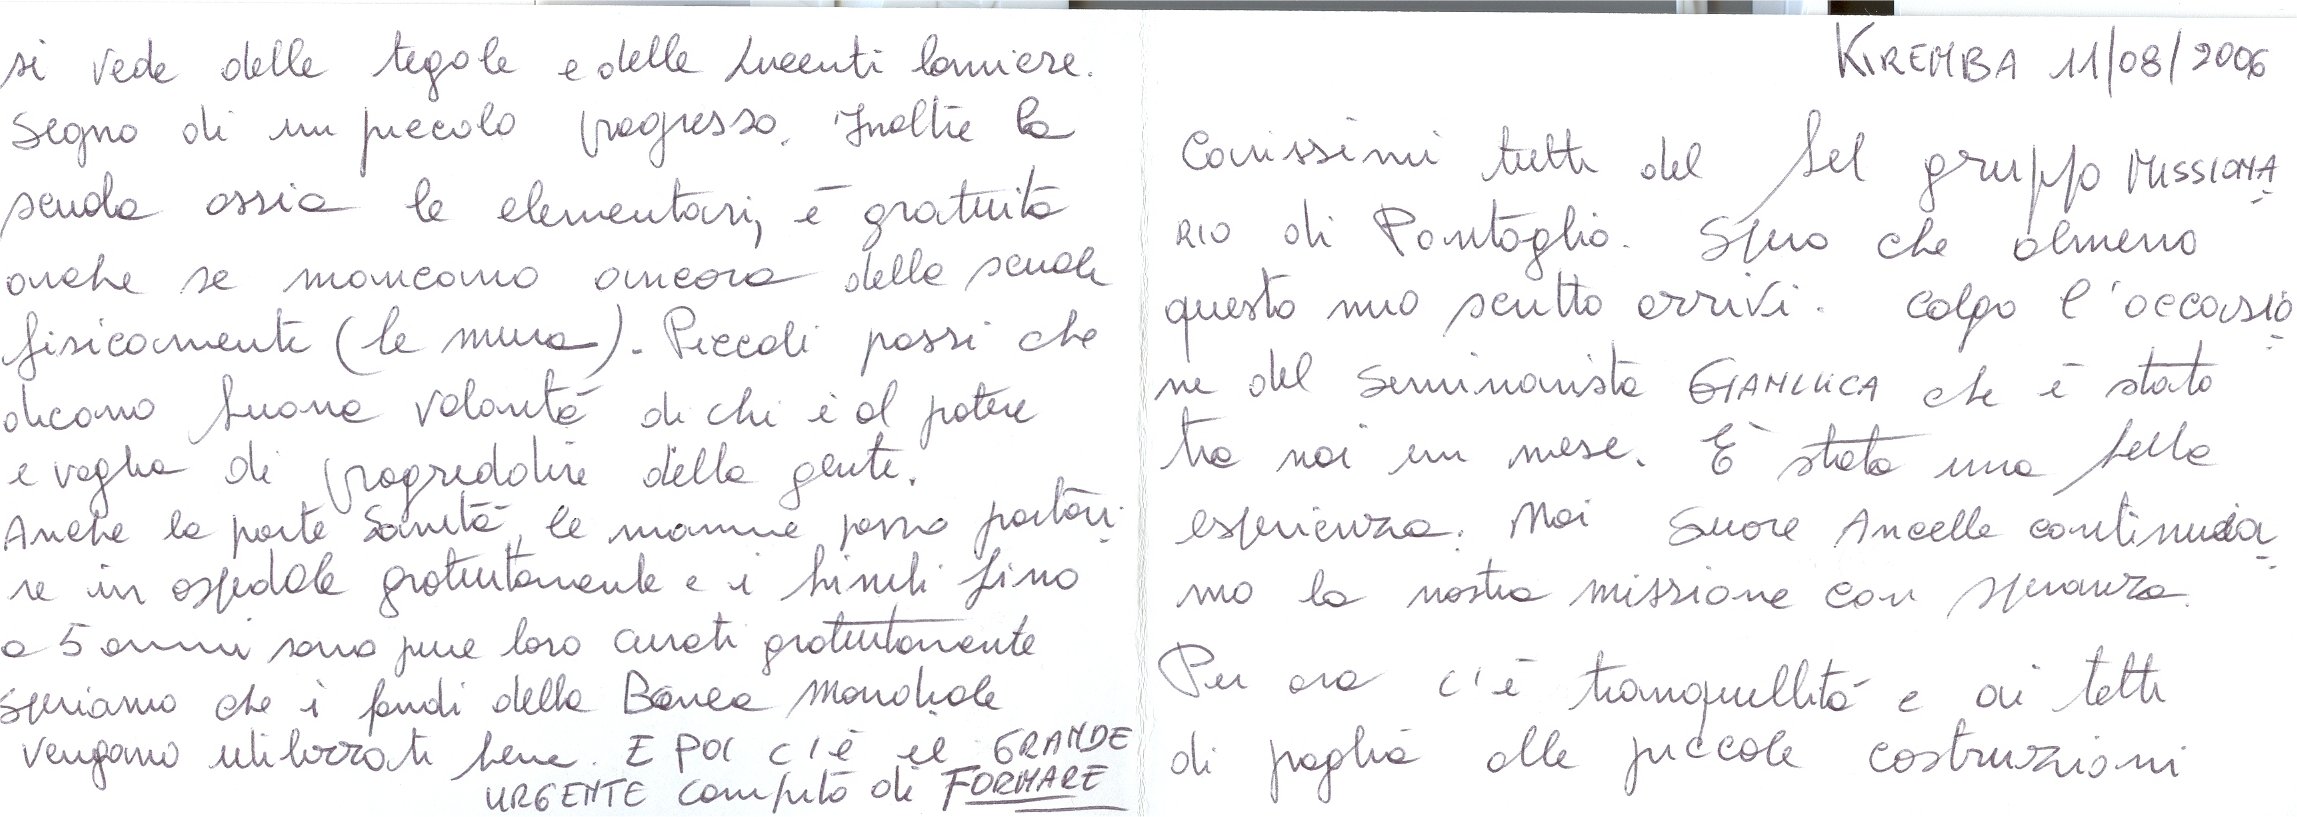 KIREMBA 11/08/2006
Carissimi tutti del bel gruppo MISSIONA
RIO di Pontoglio. Spero che almeno
questo mio scritto arrivi. Colgo l'occasio
ne del seminarista GIANLUCA che è stato
tra noi un mese. È stata una bella
esperienza. Noi Suore Ancelle continuia
mo la nostra missione con speranza.
Per ora c'è tranquillità e ai tetti
di paglia alle piccole costruzioni
si vede delle tegole e delle lucenti lamiere.
Segno di un piccolo progresso. Inoltre la
scuola ossia le elementari, è gratuita
anche se mancano ancora delle scuole
fisicamente (le mura). Piccoli passi che
dicono buona volontà di chi è al potere
e voglia di progreddire della gente.
Anche la parte Sanità, le mamme posso partori
re in ospedale gratuitamente e i bimbi fino
a 5 anni sono pure loro curati gratuitamente
speriamo che i fondi della Banca Mondiale
vengano utilizzati bene. E poi c'è il GRANDE
URGENTE compito di FORMARE